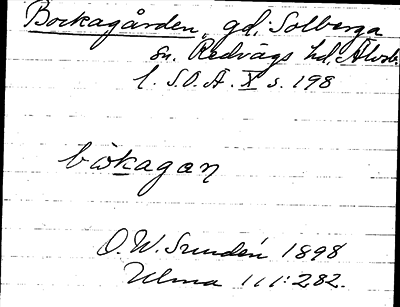 Bockagården, gd; Solberga
sn. Redvägs hd, Älvsb.
l. S.O.Ä. X s. 198
bòkagan
O.W. Sundén 1898
Ulma 111:282.